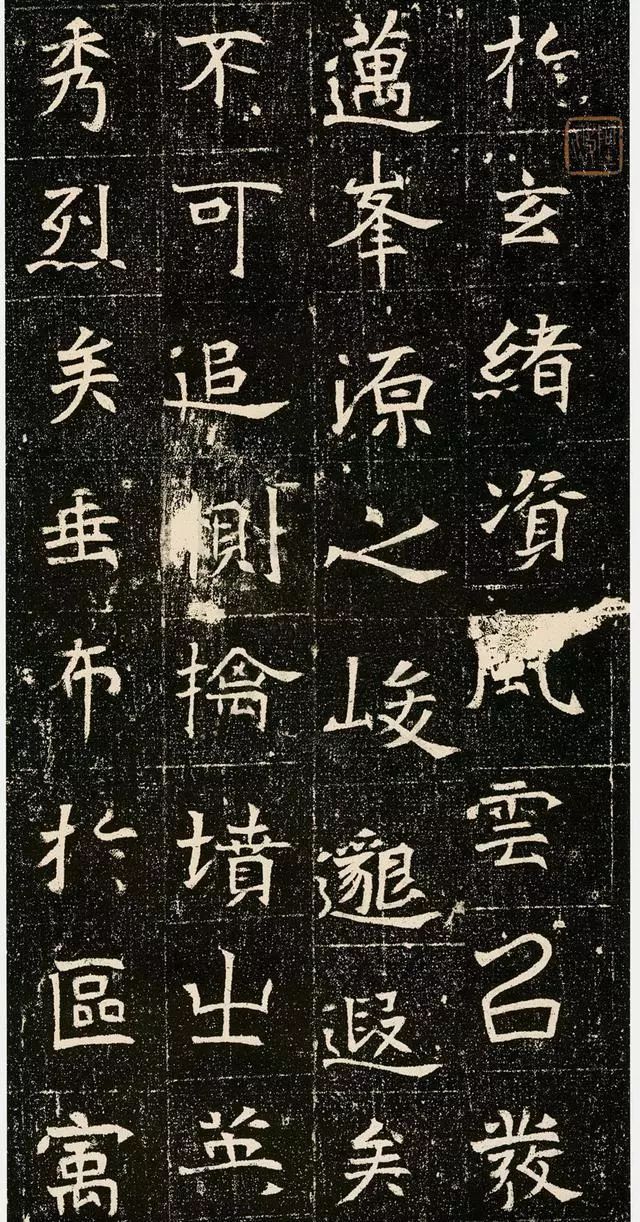 於玄緒資風雲召發
邁峯源之峻邈遐矣
不可追惻擒墳出並
秀烈矣垂布於區寓